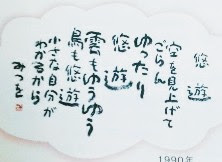 悠遊
空を見上げて
ごらん
ゆったり
悠遊
雲もゆうゆう
鳥も悠遊
小さな自分が
わかるから
みつを
1990年